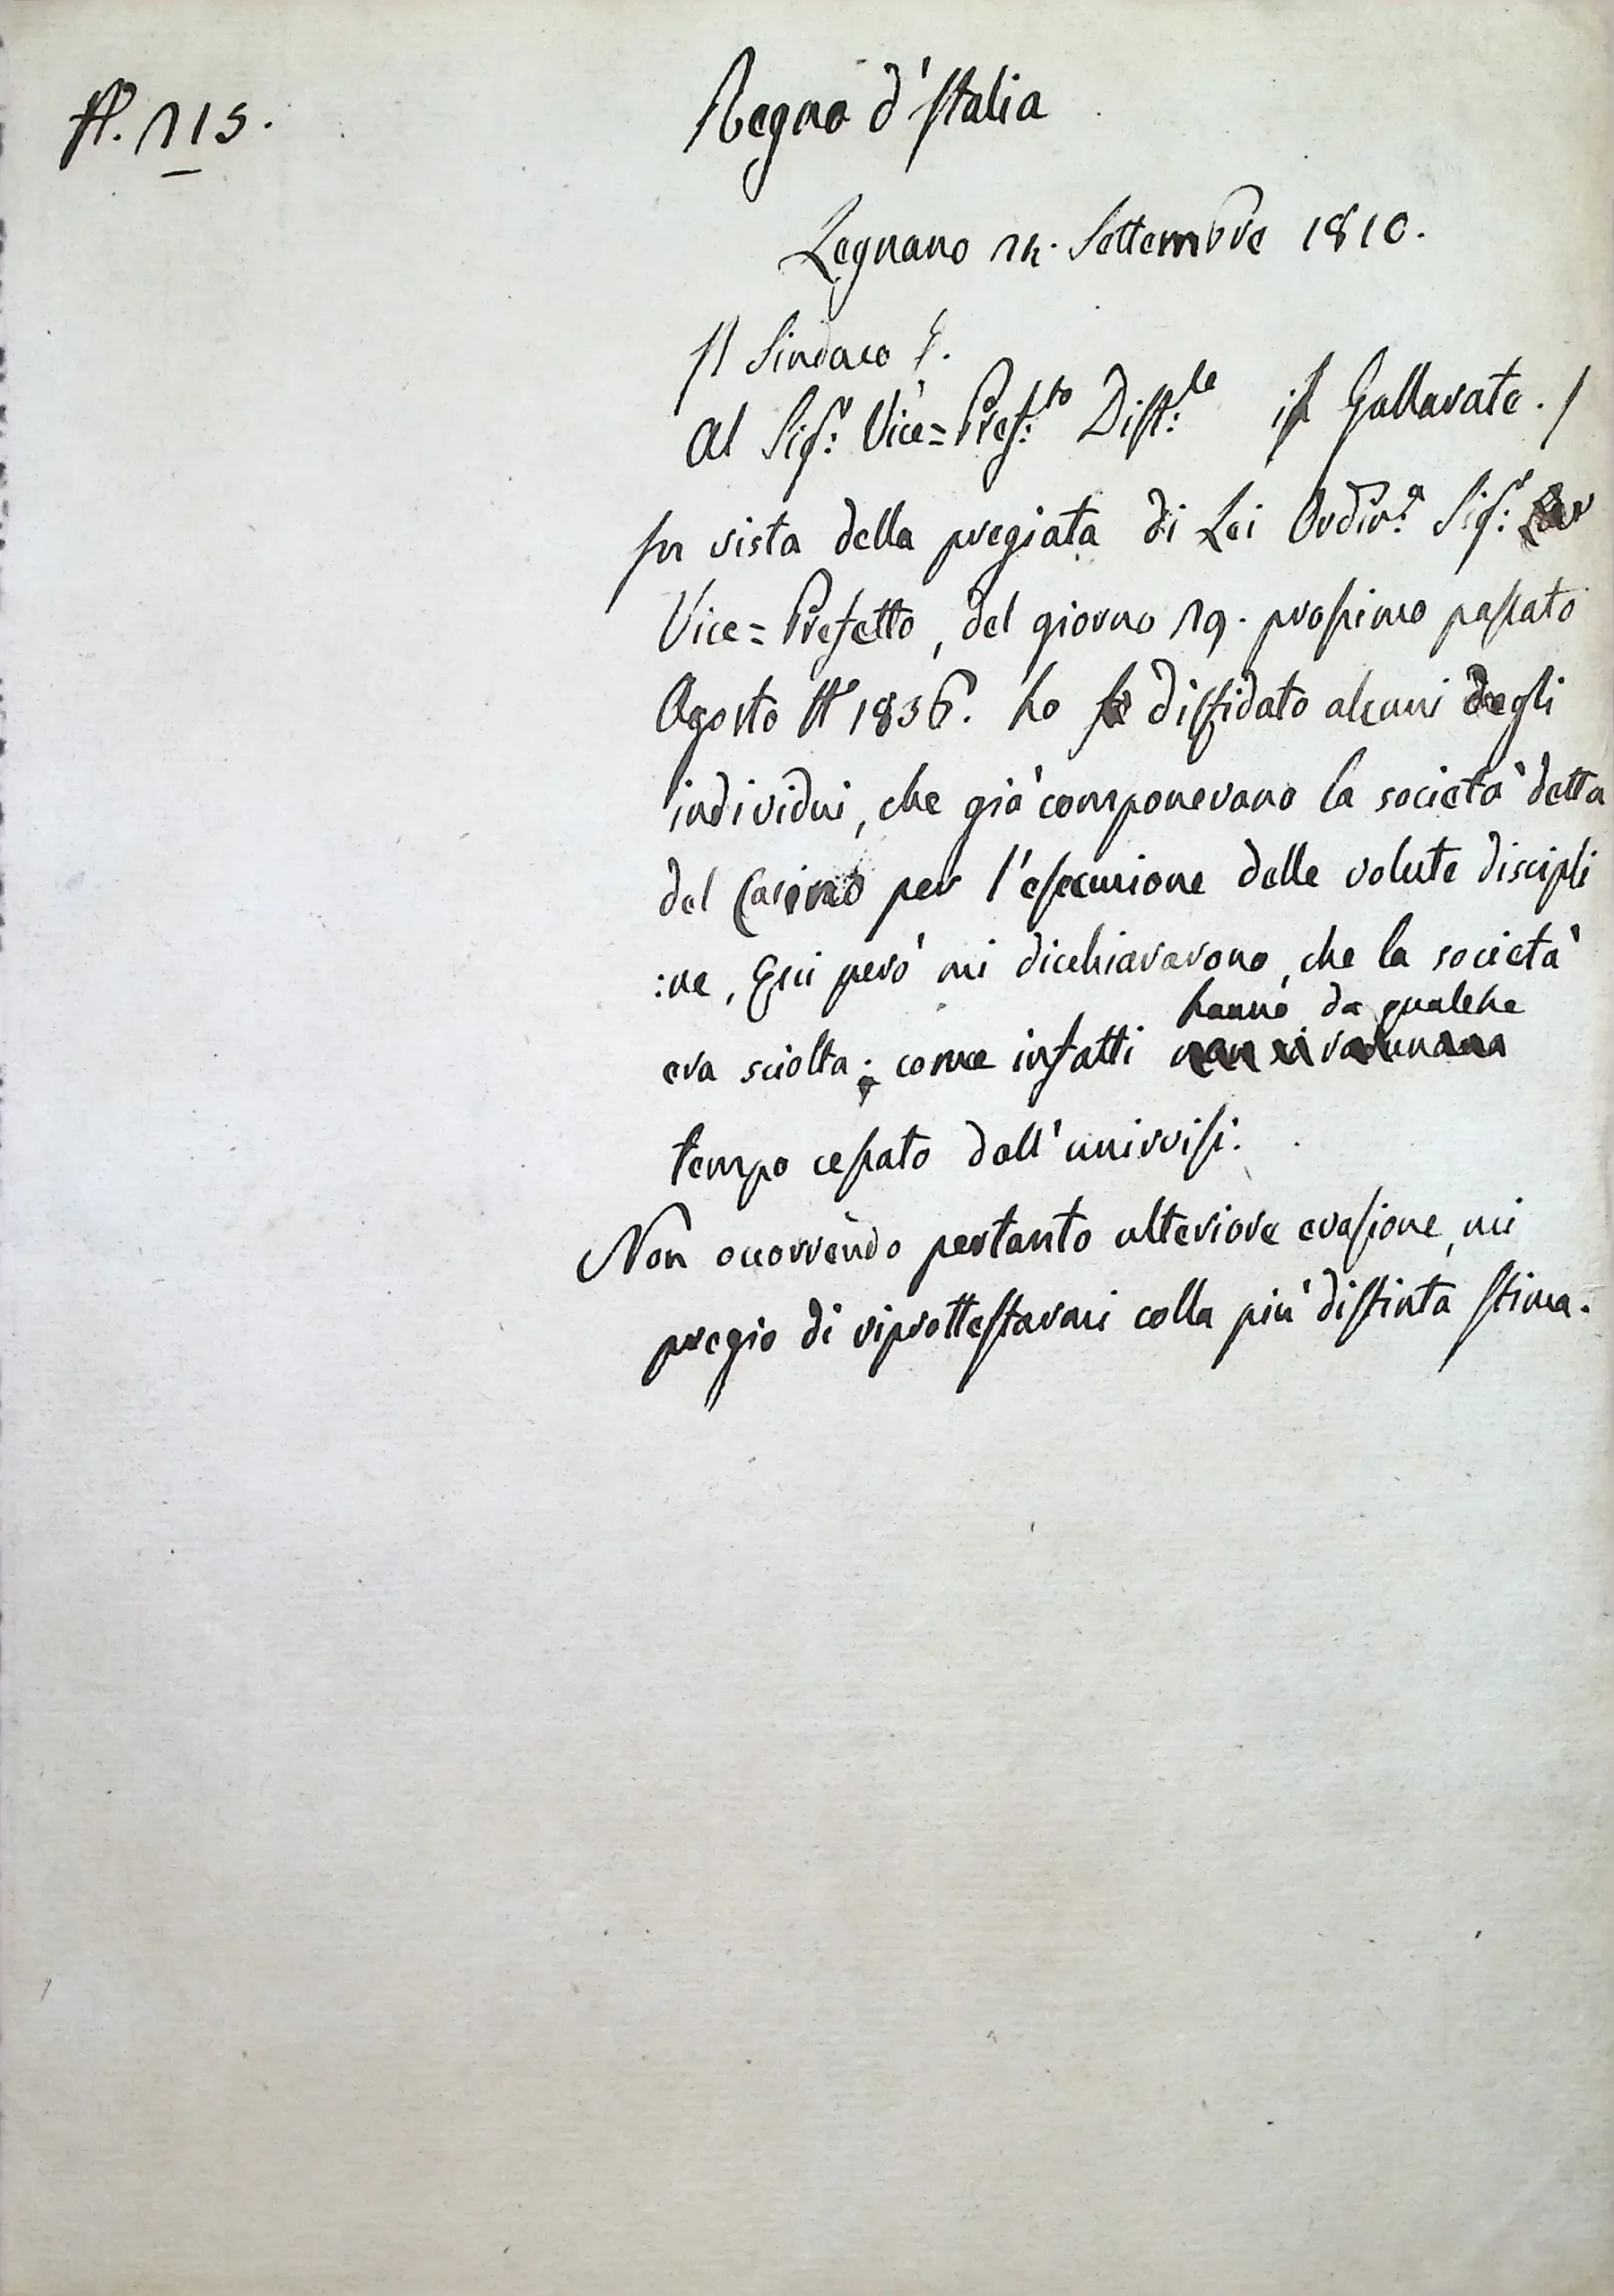 N. 115.
Regno d'Italia
Legnano 14. Settembre 1810.
Il Sindaco
Al Sig.r Vice=Pref.to Dist.le in Gallarate. /
In vista della pregiata di Lei Ordin.a Sig.r
Vice=Prefetto, del giorno 19. prossimo passato
Agosto N 1836. ho diffidato alcuni degli
individui, che già componevano la società detta
del Casino per l'esecuzione delle volute discipli
:ne, Essi però mi dicchiararono, che la società
hanno da qualche
era sciolta; come infatti non si radunana
tempo cessato dall'unirvisi.
Non occorrendo pertanto ulteriore evasione, mi
pregio di riprottestarmi colla più distinta stima.